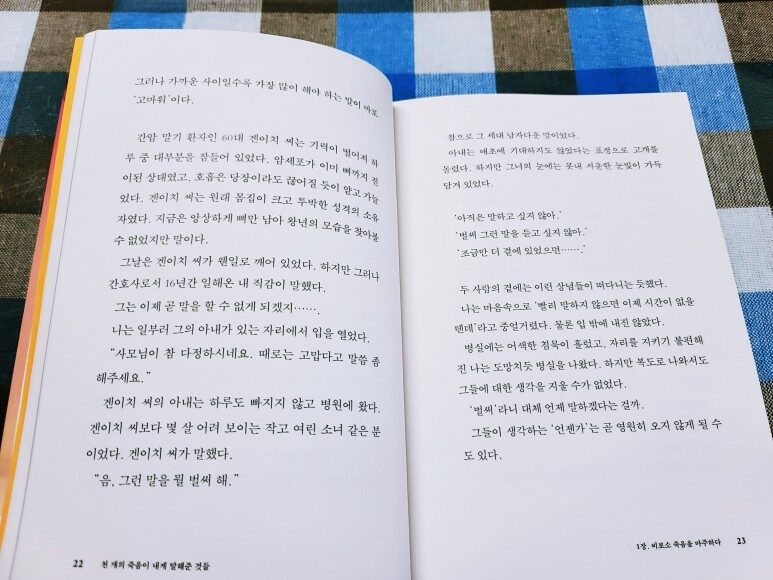 그러나 가까운 사이일수록 가장 많이 해야 하는 말이 바로
‘고마워’이다.
간암 말기 환자인 60대 겐이치 씨는 기력이 떨어져 하
루 중 대부분을 잠들어 있었다. 암세포가 이미 뼈까지 전
이된 상태였고, 호흡은 당장이라도 끊어질 듯이 얕고 가늘
었다. 겐이치 씨는 원래 몸집이 크고 투박한 성격의 소유
자였다. 지금은 앙상하게 뼈만 남아 왕년의 모습을 찾아볼
수 없었지만 말이다.
그날은 겐이치 씨가 웬일로 깨어 있었다. 하지만 그러나
간호사로서 16년간 일해온 내 직감이 말했다.
그는 이제 곧 말을 할 수 없게 되겠지…….
나는 일부러 그의 아내가 있는 자리에서 입을 열었다.
“사모님이 참 다정하시네요. 때로는 고맙다고 말씀 좀
해주세요.”
겐이치 씨의 아내는 하루도 빠지지 않고 병원에 왔다.
겐이치 씨보다 몇 살 어려 보이는 작고 여린 소녀 같은 분
이었다. 겐이치 씨가 말했다.
“음, 그런 말을 뭘 벌써 해.”
22 천 개의 죽음이 내게 말해준 것들
참으로 그 세대 남자다운 말이었다.
아내는 애초에 기대하지도 않았다는 표정으로 고개를
돌렸다. 하지만 그녀의 눈에는 못내 서운한 눈빛이 가득
담겨 있었다.
‘아직은 말하고 싶지 않아.’
‘벌써 그런 말을 듣고 싶지 않아.’
‘조금만 더 곁에 있었으면…….’
두 사람의 곁에는 이런 상념들이 떠다니는 듯했다.
나는 마음속으로 ‘빨리 말하지 않으면 이제 시간이 없을
텐데’라고 중얼거렸다. 물론 입 밖에 내진 않았다.
병실에는 어색한 침묵이 흘렀고, 자리를 지키기 불편해
진 나는 도망치듯 병실을 나왔다. 하지만 복도로 나와서도
그들에 대한 생각을 지울 수가 없었다.
‘벌써’라니 대체 언제 말하겠다는 걸까.
그들이 생각하는 ‘언젠가’는 곧 영원히 오지 않게 될 수
도 있다.
1장. 비로소 죽음을 마주하다 23